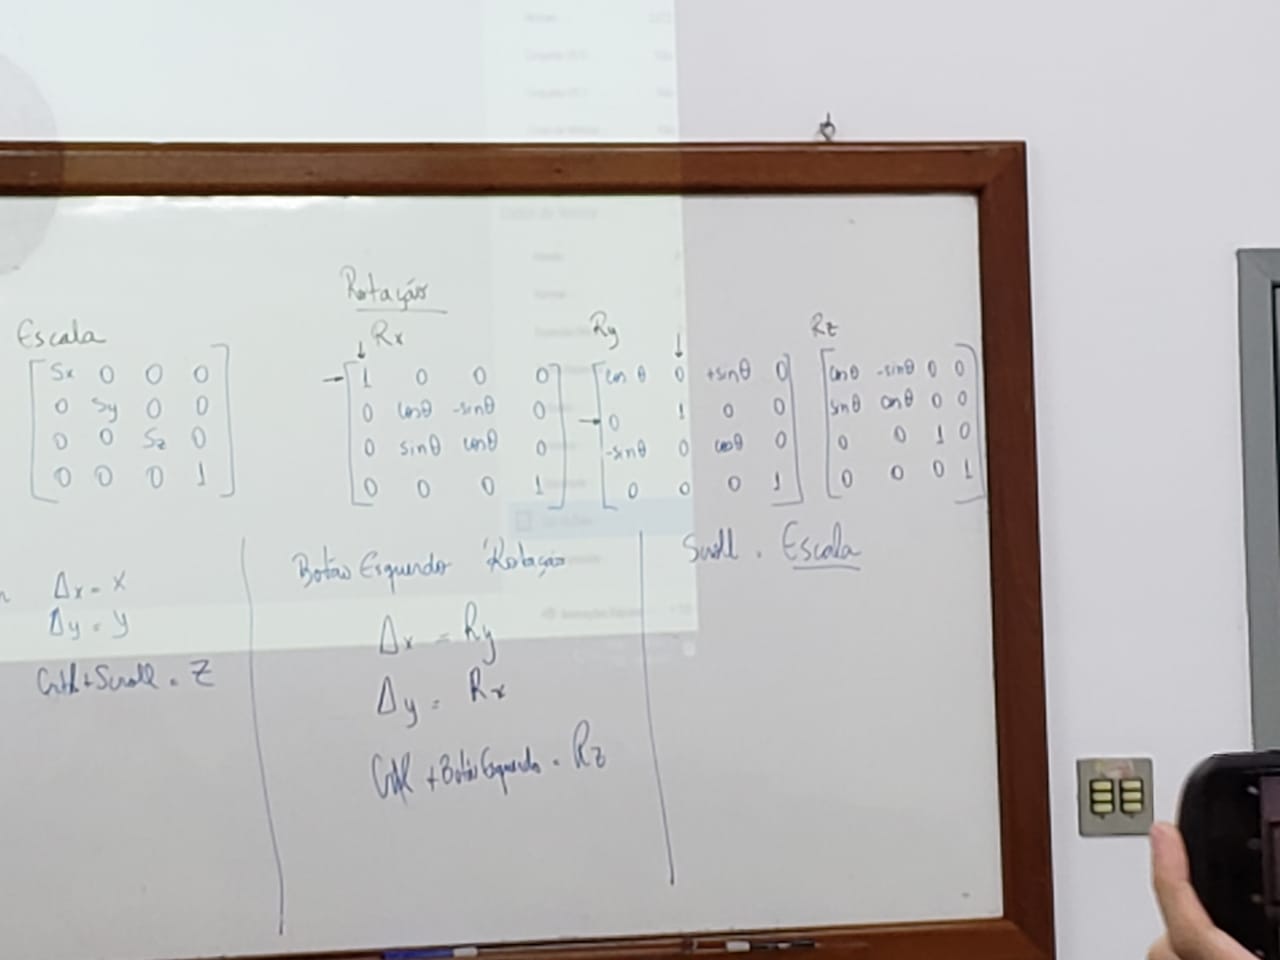 Rotação
Escala
Rx
Ry
Rz
↓
↓
Sx 0 0 0
0 Sy 0 0
0 0 Sz 0
0 0 0 1
→ 1 0 0 0
0 cosθ -sinθ 0
0 sinθ cosθ 0
0 0 0 1
cos θ 0 +sinθ 0
→ 0 1 0 0
-sinθ 0 cosθ 0
0 0 0 1
cosθ -sinθ 0 0
sinθ cosθ 0 0
0 0 1 0
0 0 0 1
Δx = x
Δy = y
Ctrl+Scroll = Z
Botão Esquerdo Rotação
Δx = Ry
Δy = Rx
Ctrl + Botão Esquerdo = Rz
Scroll = Escala